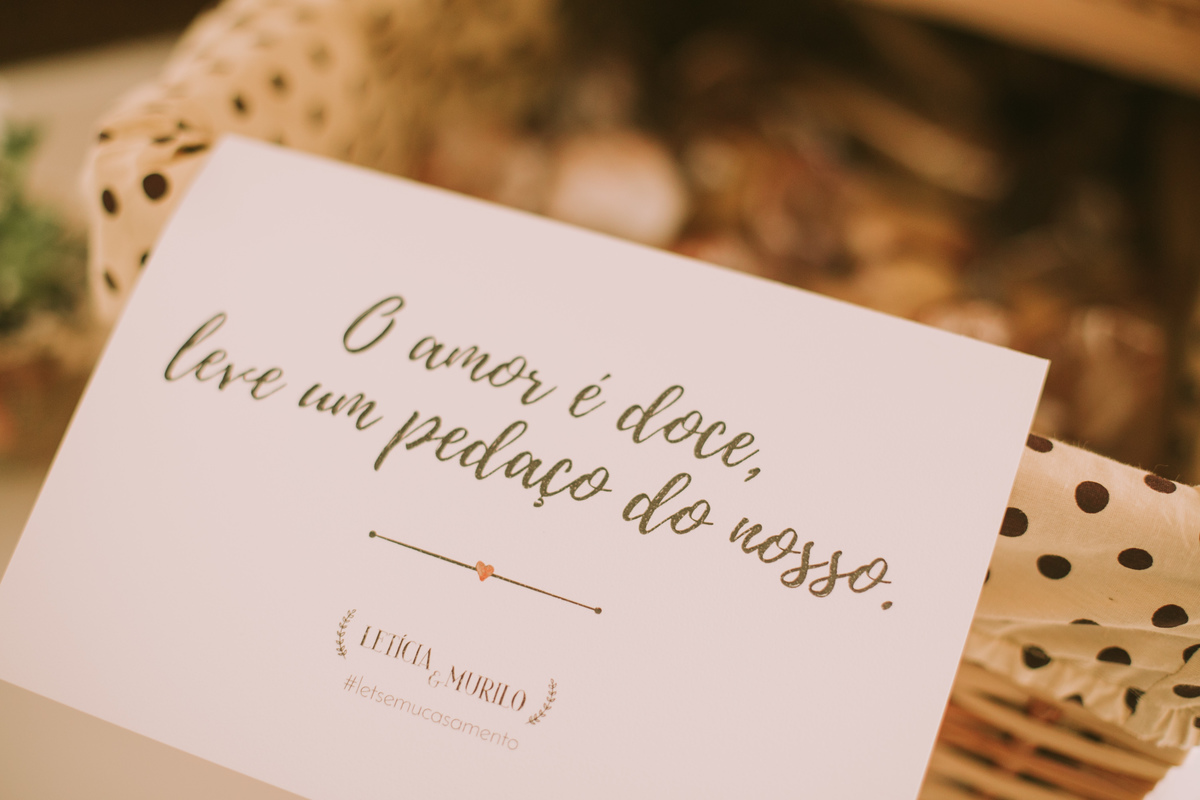 O amor é doce,
leve um pedaço do nosso.
LETÍCIA & MURILO
#letsemucasamento